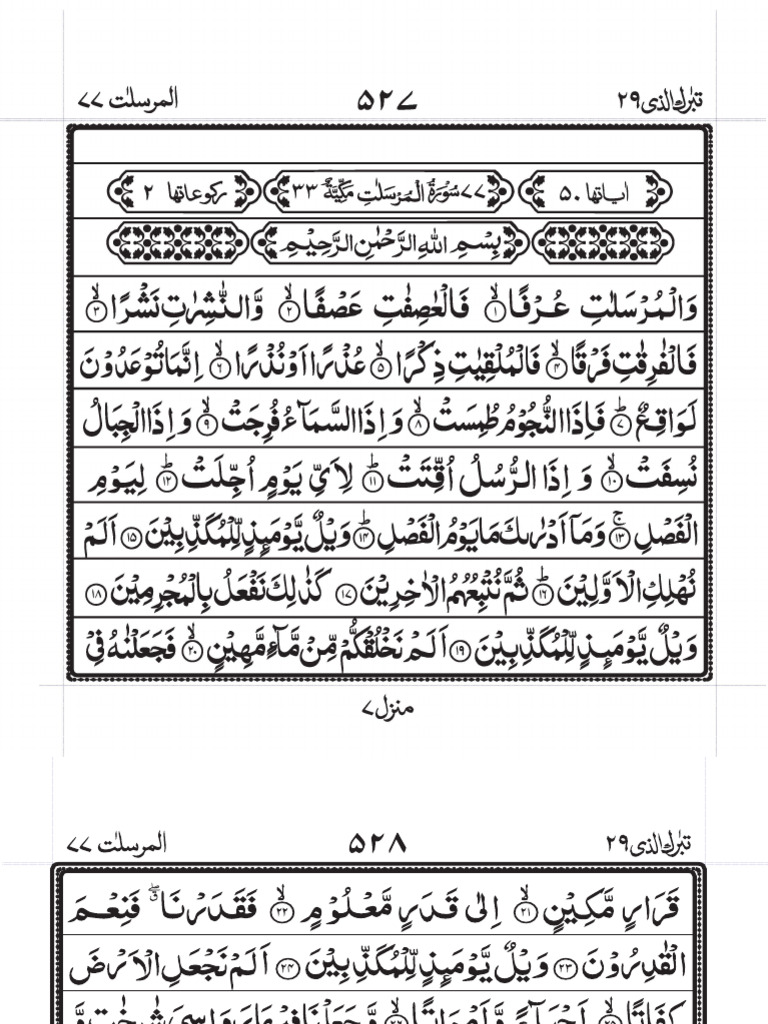 تبٰرك الذی ۲۹ ۵۲۷ المرسلٰت ۷۷
اٰیاتها ۵۰ ۷۷ سُوْرَةُ الْمُرْسَلٰتِ مَكِّيَّةٌ ۳۳ رکوعاتها ۲
بِسْمِ اللّٰهِ الرَّحْمٰنِ الرَّحِيْمِ
وَالْمُرْسَلٰتِ عُرْفًا ۙ﴿۱﴾ فَالْعٰصِفٰتِ عَصْفًا ۙ﴿۲﴾ وَّالنّٰشِرٰتِ نَشْرًا ۙ﴿۳﴾
فَالْفٰرِقٰتِ فَرْقًا ۙ﴿۴﴾ فَالْمُلْقِيٰتِ ذِكْرًا ۙ﴿۵﴾ عُذْرًا اَوْ نُذْرًا ۙ﴿۶﴾ اِنَّمَا تُوْعَدُوْنَ
لَوَاقِعٌ ؕ﴿۷﴾ فَاِذَا النُّجُوْمُ طُمِسَتْ ۙ﴿۸﴾ وَ اِذَا السَّمَآءُ فُرِجَتْ ۙ﴿۹﴾ وَ اِذَا الْجِبَالُ
نُسِفَتْ ۙ﴿۱۰﴾ وَ اِذَا الرُّسُلُ اُقِّتَتْ ؕ﴿۱۱﴾ لِاَيِّ يَوْمٍ اُجِّلَتْ ؕ﴿۱۲﴾ لِيَوْمِ
الْفَصْلِ ۚ﴿۱۳﴾ وَمَاۤ اَدْرٰىكَ مَا يَوْمُ الْفَصْلِ ؕ﴿۱۴﴾ وَيْلٌ يَّوْمَىِٕذٍ لِّلْمُكَذِّبِيْنَ ﴿۱۵﴾ اَلَمْ
نُهْلِكِ الْاَوَّلِيْنَ ؕ﴿۱۶﴾ ثُمَّ نُتْبِعُهُمُ الْاٰخِرِيْنَ ﴿۱۷﴾ كَذٰلِكَ نَفْعَلُ بِالْمُجْرِمِيْنَ ﴿۱۸﴾
وَيْلٌ يَّوْمَىِٕذٍ لِّلْمُكَذِّبِيْنَ ﴿۱۹﴾ اَلَمْ نَخْلُقْكُّمْ مِّنْ مَّآءٍ مَّهِيْنٍ ۙ﴿۲۰﴾ فَجَعَلْنٰهُ فِيْ
منزل ۷
تبٰرك الذی ۲۹ ۵۲۸ المرسلٰت ۷۷
قَرَارٍ مَّكِيْنٍ ۙ﴿۲۱﴾ اِلٰى قَدَرٍ مَّعْلُوْمٍ ۙ﴿۲۲﴾ فَقَدَرْنَا ۖۗ فَنِعْمَ
الْقٰدِرُوْنَ ﴿۲۳﴾ وَيْلٌ يَّوْمَىِٕذٍ لِّلْمُكَذِّبِيْنَ ﴿۲۴﴾ اَلَمْ نَجْعَلِ الْاَرْضَ
كِفَاتًا ۙ﴿۲۵﴾ اَحْيَآءً وَّاَمْوَاتًا ۙ﴿۲۶﴾ وَّجَعَلْنَا فِيْهَا رَوَاسِيَ شٰمِخٰتٍ وَّ